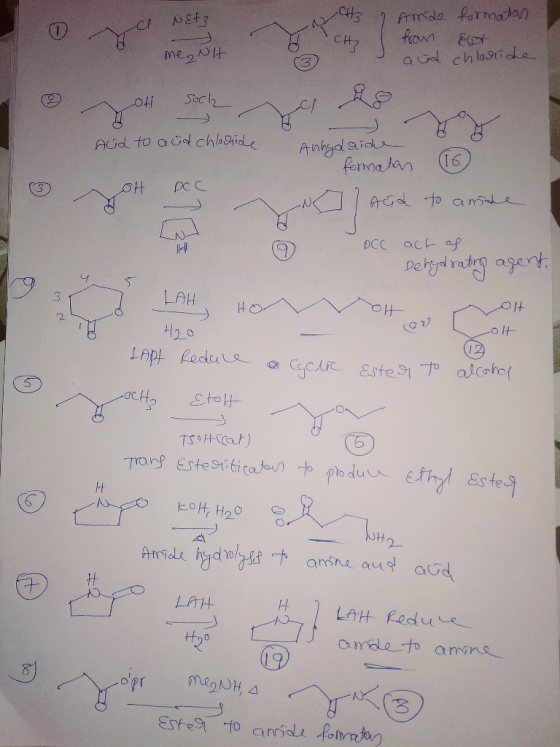 ① Cl O NEt3 Me2NH O N CH3 CH3 ③ Amide formaton
from
acid chloride
② OH O SOCl2 Cl O O O O O ⑯
Acid to acid chloride Anhydride
formaton
③ OH O DCC N H N O ⑨ Acid to amide
DCC act as
Dehydrating agent.
3 4 5 2 1 O O LAH H2O HO OH (or) OH OH ⑫
Reduce cyclic Ester to alcohol
⑤ OCH3 O EtOH TSOH(cat) O O ⑤
Trans Esterificaton to produce Ethyl Ester
⑥ H N O KOH, H2O Δ O O NH2
Amide hydrolysis amine and acid
⑦ H N O LAH H2O H N ⑲ LAH Reduce
amide to amine
8) O O'pr Me2NH, Δ O N ③
Ester to amide formaton